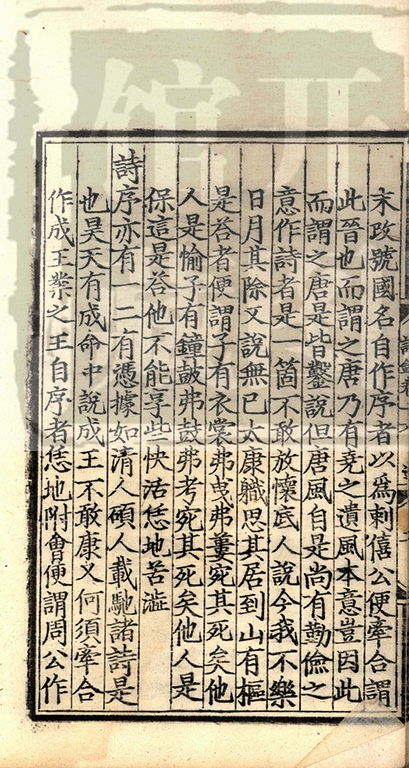 未改號國名自作序者以爲刺僖公便牽合謂
此晉也而謂之唐乃有堯之遺風本意豈因此
而謂之唐是皆鑿說但唐風自是尚有勤儉之
意作詩者是一箇不敢放懷底人說今我不樂
日月其除又說無已太康職思其居到山有樞
是荅者便謂子有衣裳弗曳弗婁宛其死矣他
人是愉子有鐘鼓弗鼓弗考宛其死矣他人是
保這是荅他不能享些快活恁地苦澁
詩序亦有一二有憑據如清人碩人載馳諸詩是
也昊天有成命中說成王不敢康又何須牽合
作成王業之王自序者恁地附會便謂周公作